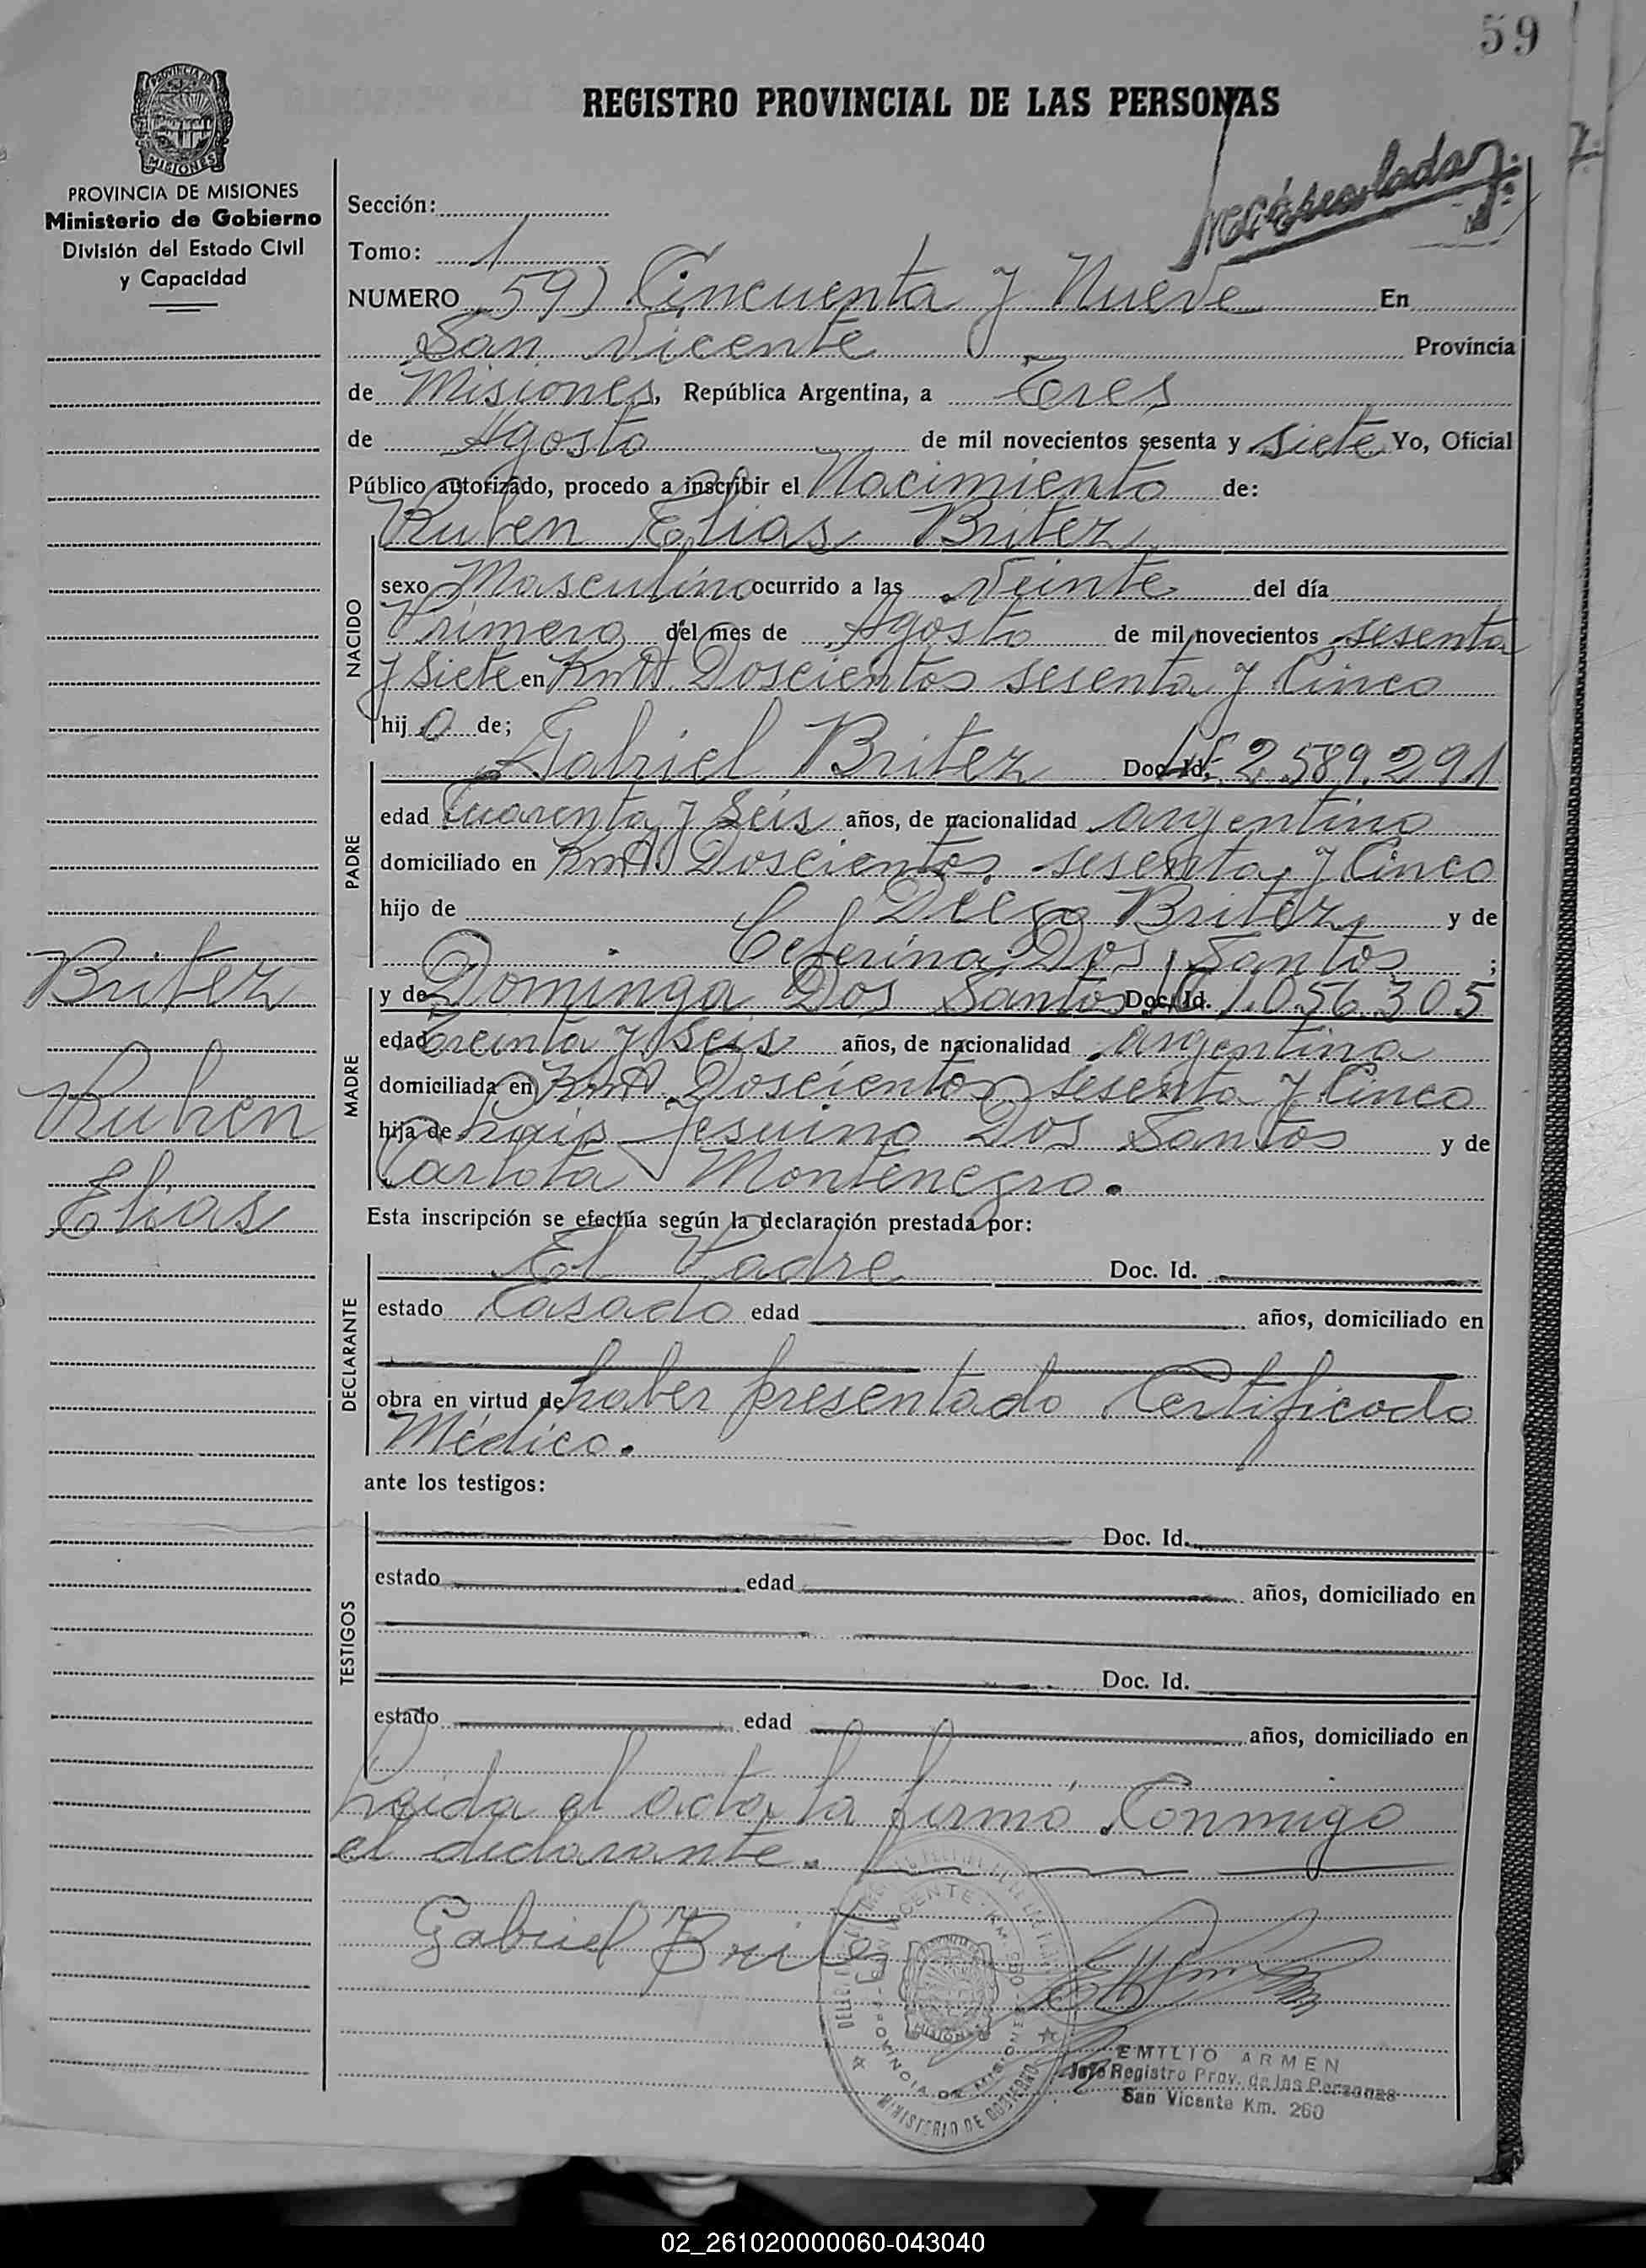 59
REGISTRO PROVINCIAL DE LAS PERSONAS
PROVINCIA DE
MISIONES
PROVINCIA DE MISIONES
Ministerio de Gobierno
División del Estado Civil
y Capacidad
Sección:
Tomo: 1
NUMERO 59) Cincuenta y Nueve En
San Vicente Provincia
de Misiones, República Argentina, a Tres
de Agosto de mil novecientos sesenta y siete Yo, Oficial
Público autorizado, procedo a inscribir el Nacimiento de:
Ruben Elias Britez
NACIDO
sexo Masculino ocurrido a las Veinte del día
Primero del mes de Agosto de mil novecientos sesenta
y Siete en Doscientos sesenta y Cinco
hijo de;
PADRE
Gabriel Britez Doc. Id. 2.589.291
edad Cuarenta y Seis años, de nacionalidad argentino
domiciliado en Doscientos sesenta y Cinco
hijo de Diego Britez y de
Ceferina Dos Santos ;
MADRE
y de Dominga Dos Santos Doc. Id. 1.056.305
edad Treinta y Seis años, de nacionalidad argentina
domiciliada en Doscientos sesenta y Cinco
hija de Jesuino Dos Santos y de
Carlota Montenegro.
Britez
Ruben
Elias
Esta inscripción se efectúa según la declaración prestada por:
DECLARANTE
El Padre Doc. Id.
estado Casado edad años, domiciliado en
obra en virtud de haber presentado Certificado
Médico.
ante los testigos:
TESTIGOS
Doc. Id.
estado edad años, domiciliado en
Doc. Id.
estado edad años, domiciliado en
Leida el acta la firmó Conmigo
el declarante.
Gabriel Britez
VICENTE
PROVINCIA DE MISIONES
MINISTERIO DE GOBIERNO
EMILIO ARMEN
Jefe Registro Prov. de las Personas
San Vicente Km. 260
02_261020000060-043040